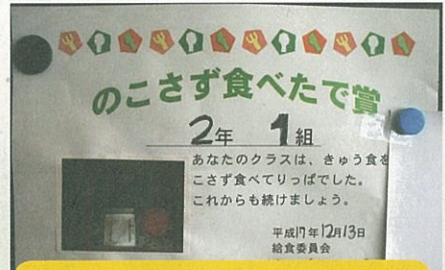 のこさず食べたで賞
2年 1組
あなたのクラスは、きゅう食を
こさず食べてりっぱでした。
これからも続けましょう。
平成17年12月13日
給食委員会